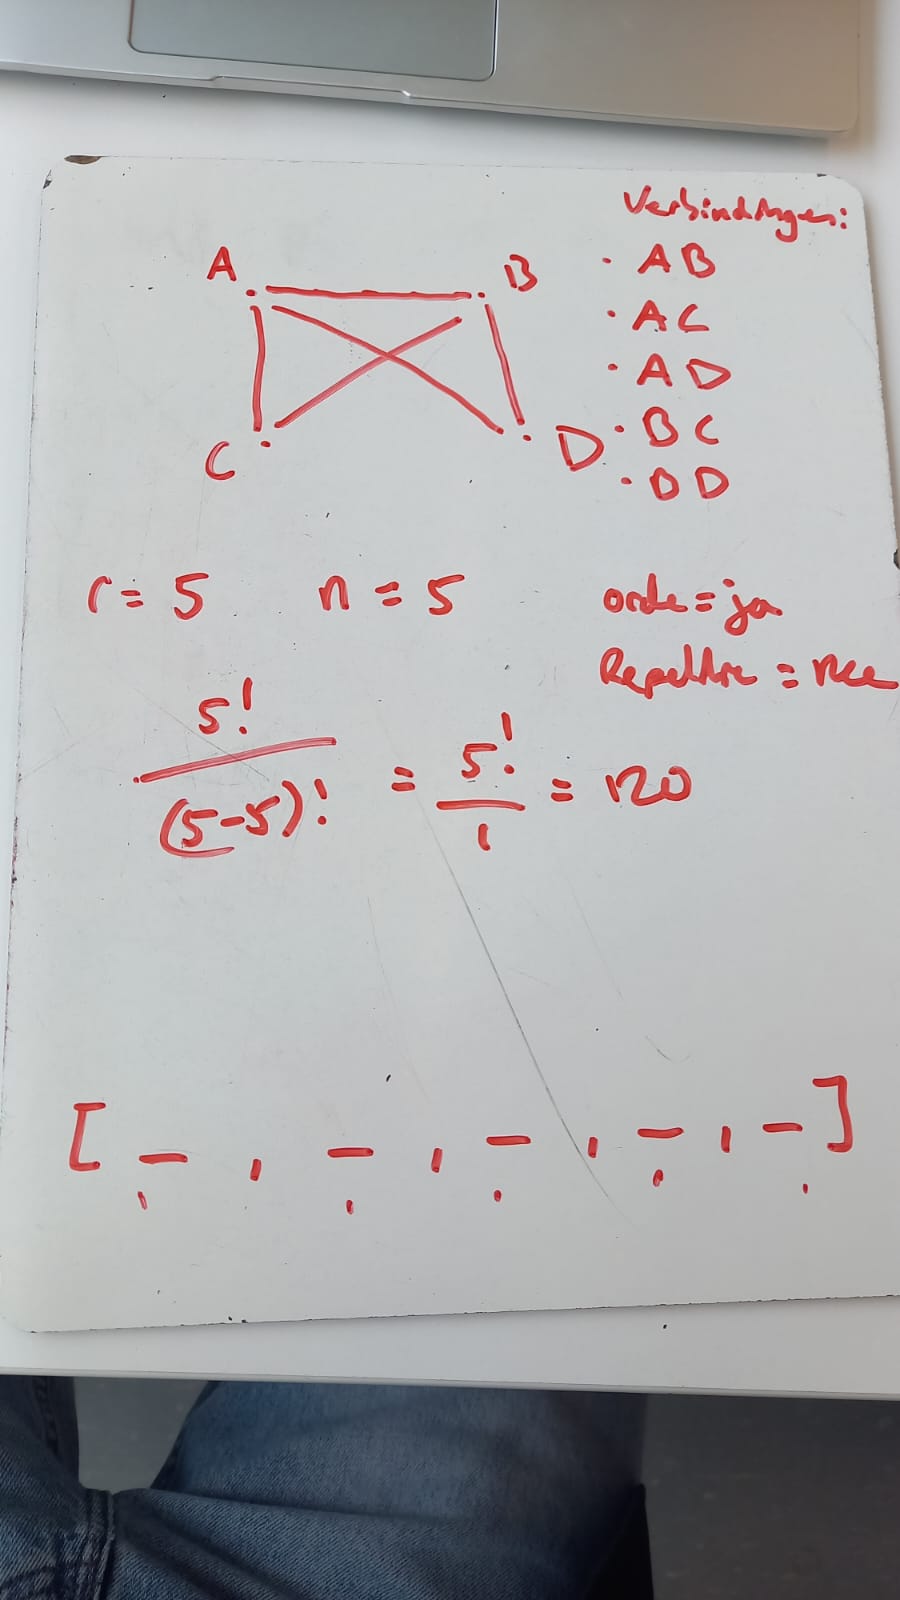 Verbindingen:
A B
· AB
· AC
· AD
C D
· BC
· BD
r = 5 n = 5 orde = ja
Repetitie = nee
5! / (5-5)! = 5! / 1 = 120
[ _ , _ , _ , _ , _ ]